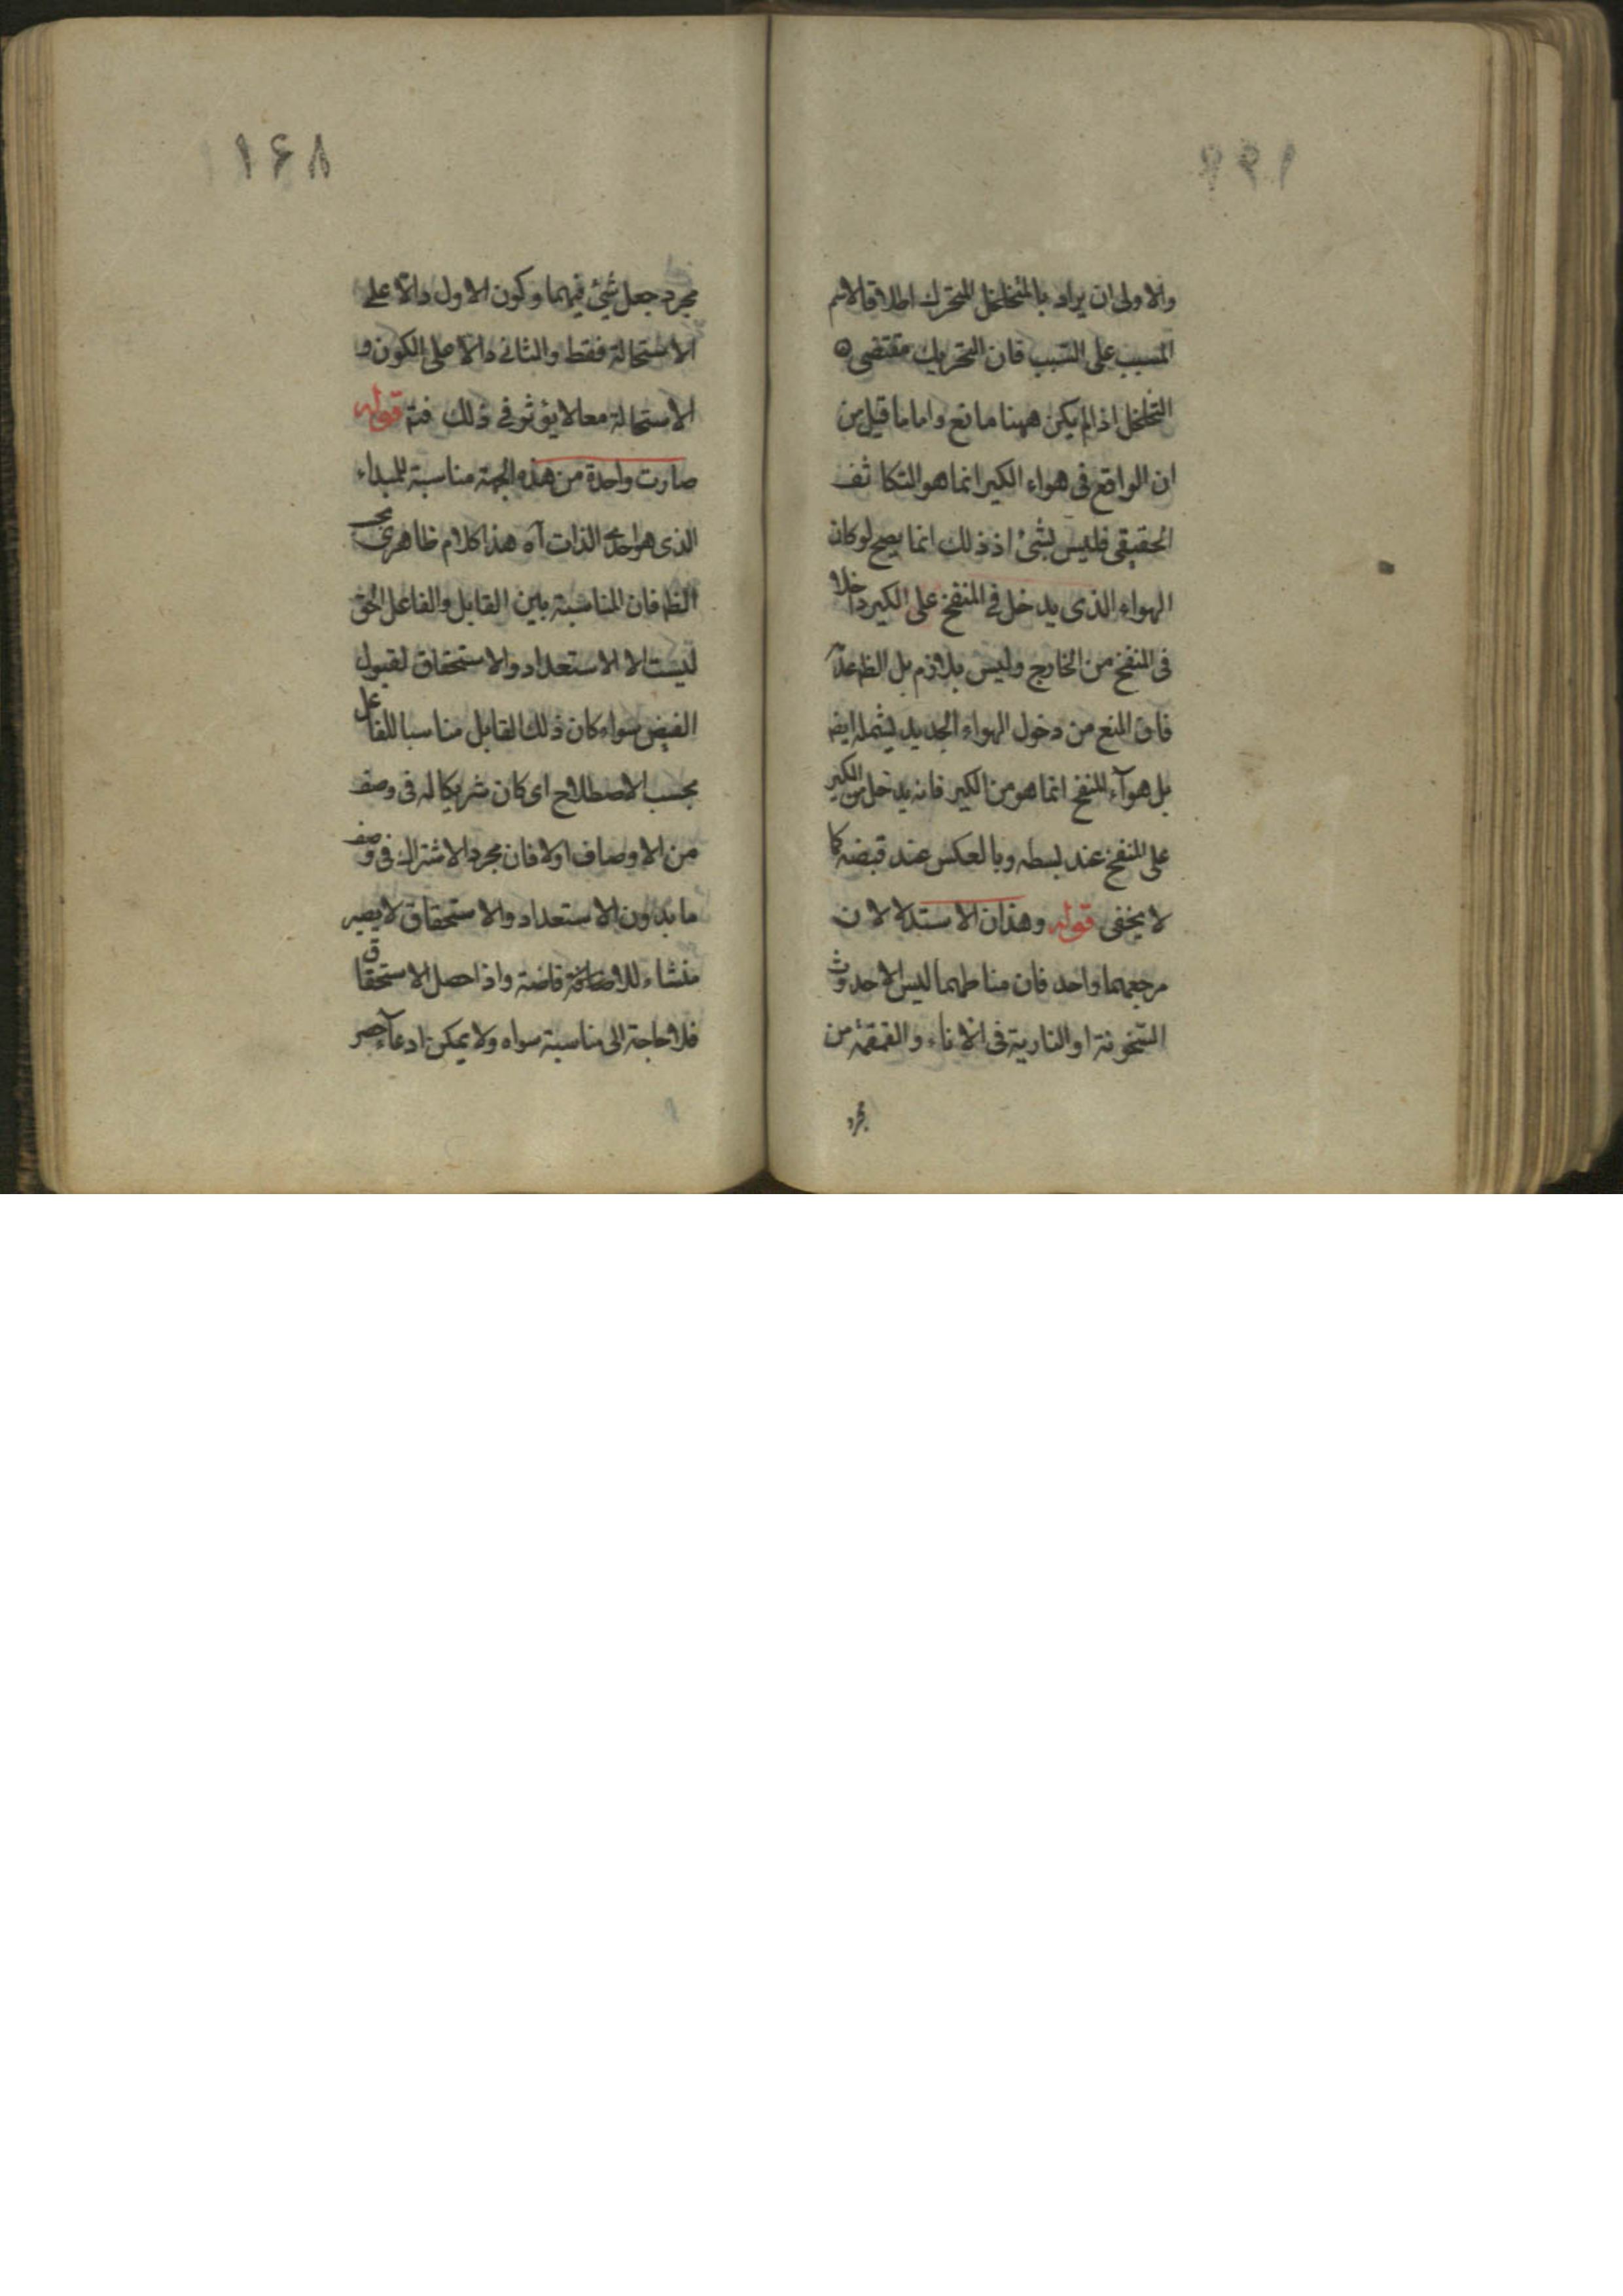 والاولى ان يراد بالمتخلخل المتحرك اطلاقا لاسم
المسبب على السبب فان التحريك مقتضى
التخلخل اذا لم يكن ههنا مانع واما ما قيل من
ان الواقع فى هواء الكير انما هو التكاثف
الحقيقى فليس بشئ اذ ذلك انما يصح لو كان
الهواء الذى يدخل فى المنفخ على الكير داخلا
فى المنفخ من الخارج وليس بلازم بل الظ
فان المنع من دخول الهواء الجديد يشمله ايض
بل هوآء المنفخ انما هو من الكير فانه يدخل من الكير
على المنفخ عند بسطه وبالعكس عند قبضه كما
لا يخفى قوله وهذان الاستدلالان
مرجعهما واحد فان مناطهما ليس الا حدوث
السخونة او النارية فى الاناء والقمقمة من
مجرد
١۶٨
مجرد جعل شئ فيهما وكون الاول دالا على
الاستحالة فقط والثانى دالا على الكون و
الاستحالة معا لا يؤثر فى ذلك فتم قوله
صارت واحدة من هذه الجهة مناسبة للمبداء
الذى هو احدى الذات آه هذا كلام ظاهرى بحسب
الظ فان المناسبة بين القابل والفاعل الحق
ليست الا الاستعداد والاستحقاق لقبول
الفيض سواء كان ذلك القابل مناسبا للفاعل
بحسب الاصطلاح اى كان شريكا له فى وصف
من الاوصاف اولا فان مجرد الاشتراك فى وصف
ما بدون الاستعداد والاستحقاق لا يصير
منشاء للافاضة واذا حصل الاستحقاق
فلا حاجة الى مناسبة سواه ولا يمكن ادعآء حصر